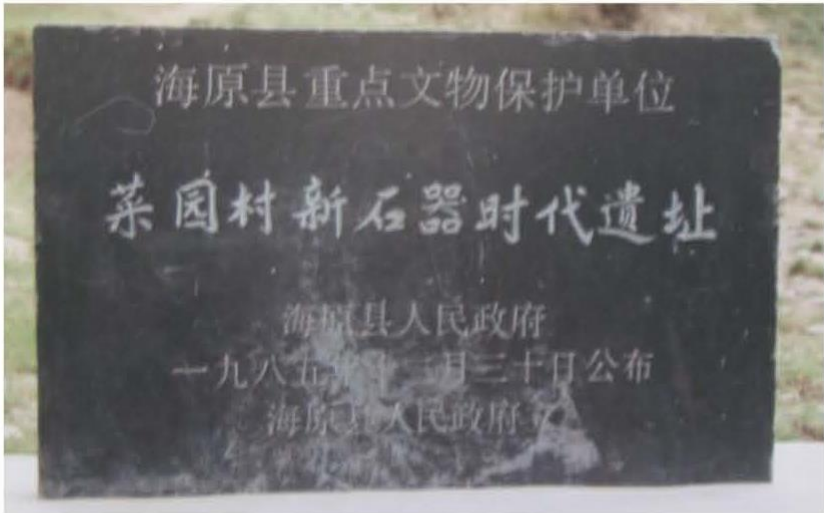 海原县重点文物保护单位
菜园村新石器时代遗址
海原县人民政府
一九八五年十二月三十日公布
海原县人民政府立